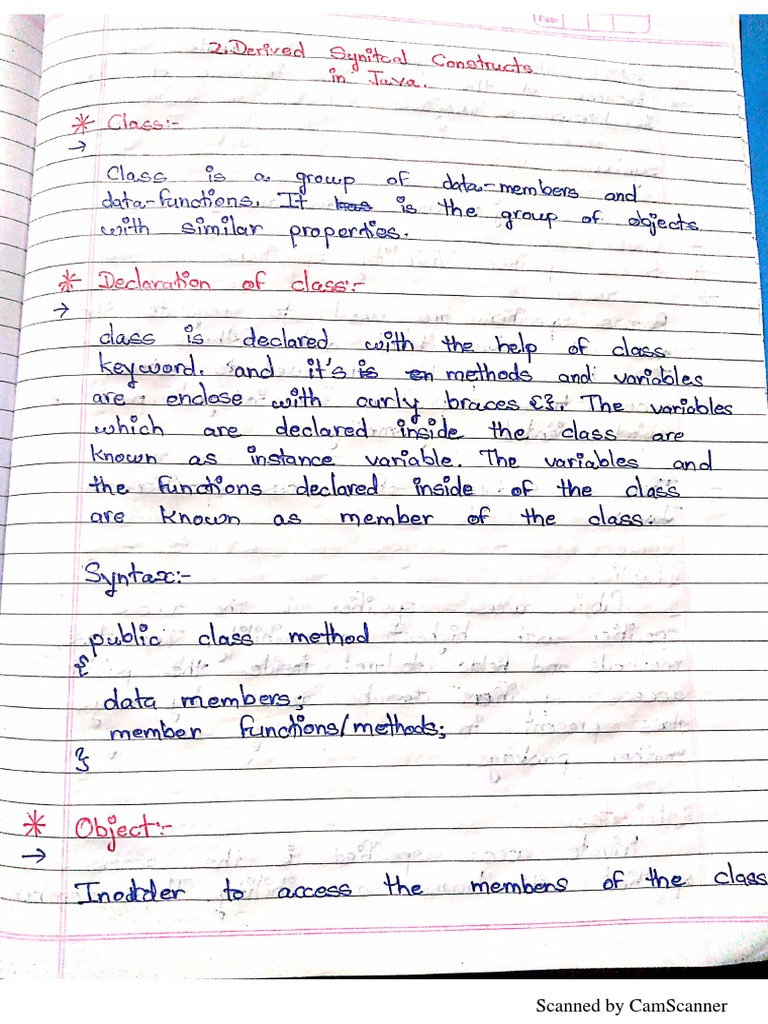 Date
2. Derived Synitcal Constructs
in Java.
* Class:-
→
Class is a group of data-members and
data-functions. It has is the group of objects
with similar properties.
* Declaration of class:-
→
class is declared with the help of class
keyword. and it's is en methods and variables
are enclose with curly braces {}. The variables
which are declared inside the class are
known as instance variable. The variables and
the functions declared inside of the class
are known as member of the class.
Syntax:-
public class method
{
data members;
member functions/methods;
}
* Object:-
→
Inodder to access the members of the class
Scanned by CamScanner